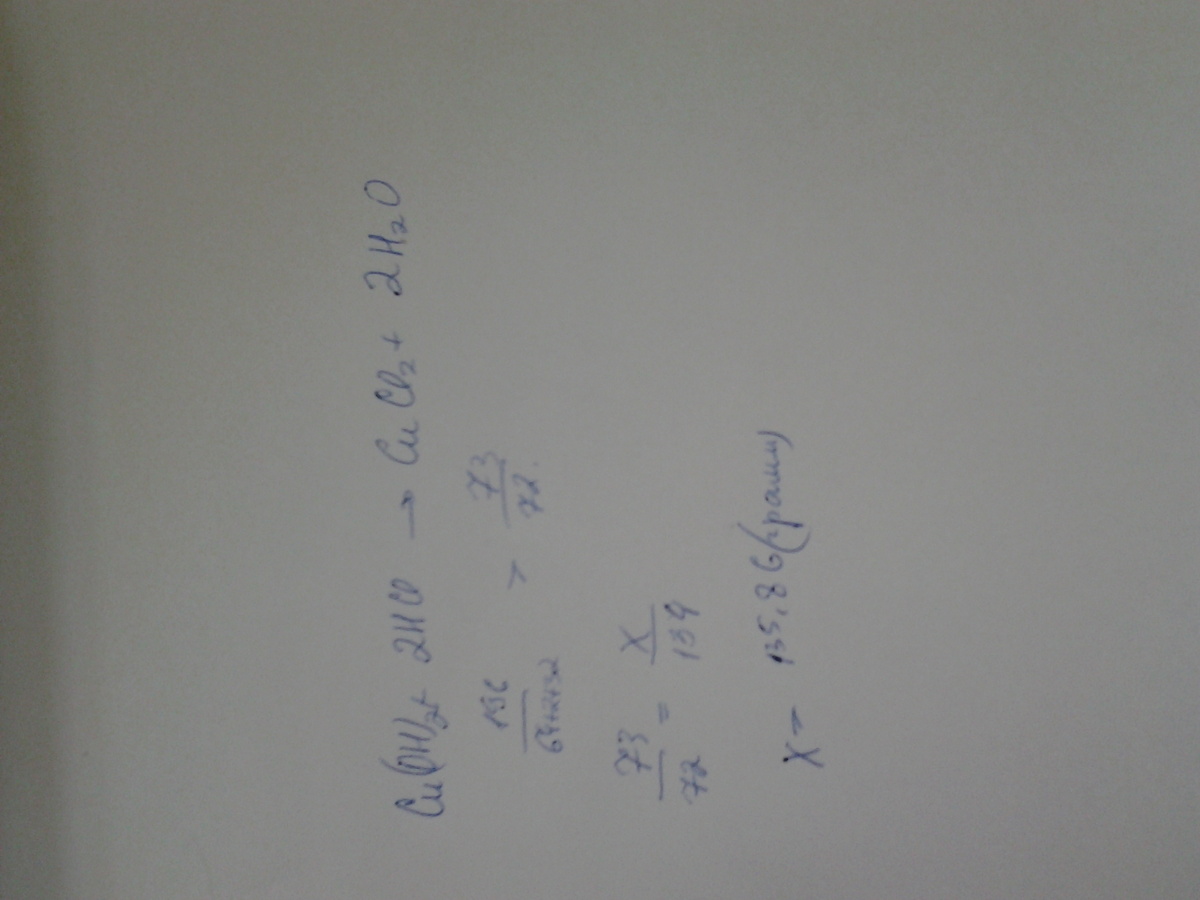 Cu(OH)₂ + 2HCl → CuCl₂ + 2H₂O
196/64+2+32 > 73/72
73/72 = X/134
X = 135,86(грамм)